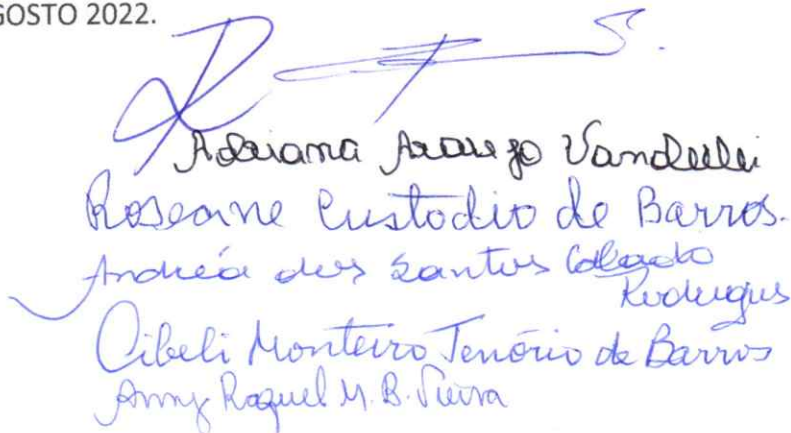 GOSTO 2022.
Adriana Araujo Vanderlei
Roseane Custodio de Barros.
Andréa dos Santos Calado
Rodrigues
Cibeli Monteiro Tenório de Barros
Anny Raquel M. B. Vieira